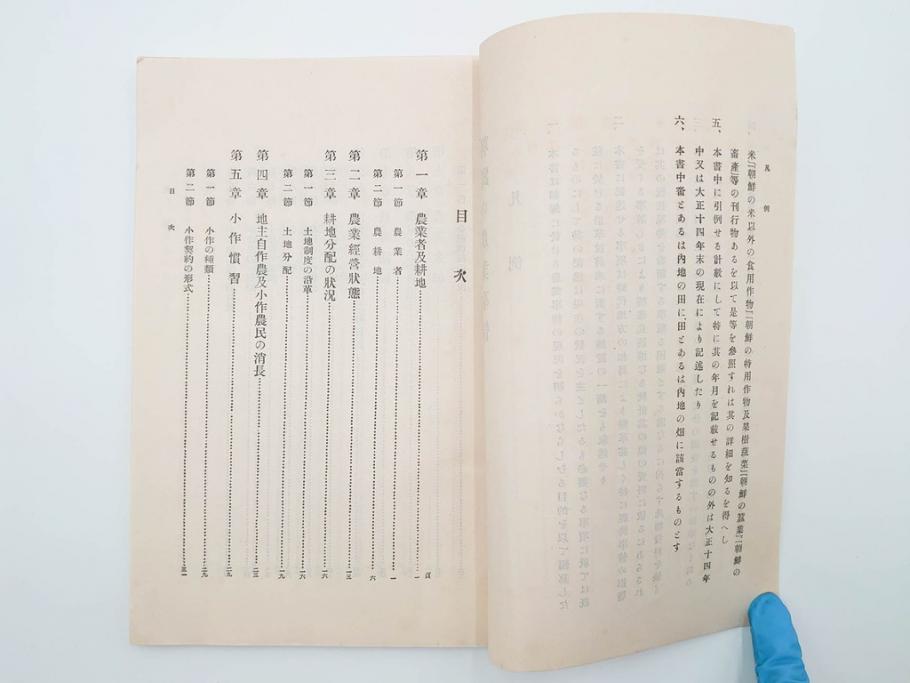 凡例
米「朝鮮の米以外の食用作物」「朝鮮の特用作物及果樹蔬菜」「朝鮮の蠶業」「朝鮮の
畜產」等の刊行物あるを以て是等を參照すれは其の詳細を知るを得へし
五、本書中に引例せる計數にして特に其の年月を記載せるものの外は大正十四年
中又は大正十四年末の現在により記述したり
六、本書中畓とあるは內地の田に、田とあるは內地の畑に該當するものとす
目次
頁
第一章 農業者及耕地…一
第一節 農業者…一
第二節 農耕地…六
第二章 農業經營狀態…一三
第三章 耕地分配の狀況…一六
第一節 土地制度の沿革…一六
第二節 土地分配…一九
第四章 地主自作農及小作農民の消長…二三
第五章 小作慣習…二九
第一節 小作の種類…二九
第二節 小作契約の形式…三一
目次